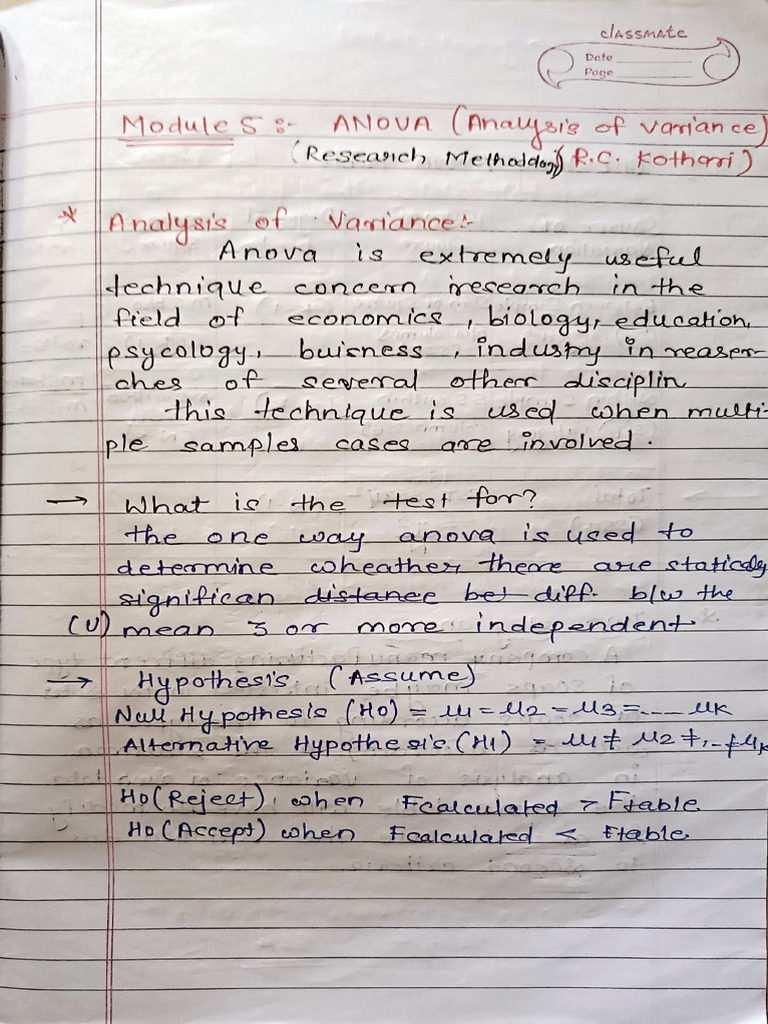 classmate
Date
Page
Module 5 :- ANOVA (Analysis of variance)
(Research Methodology) (R.C. Kothari)
* Analysis of Variance:-
Anova is extremely useful
technique concern research in the
field of economics, biology, education,
psycology, buisness, industry in reaser-
ches of several other disciplin
this technique is used when multi-
ple samples cases are involved.
→ What is the test for?
the one way anova is used to
determine wheather there are statically
significan distance bet diff. b/w the
(U) mean 3 or more independent.
→ Hypothesis (Assume)
Null Hypothesis (H0) = μ1 = μ2 = μ3 = ---- μk
Alternative Hypothesis (H1) = μ1 ≠ μ2 ≠, .. ≠ μk
H0 (Reject) when Fcalculated > Ftable
H0 (Accept) when Fcalculated < Ftable